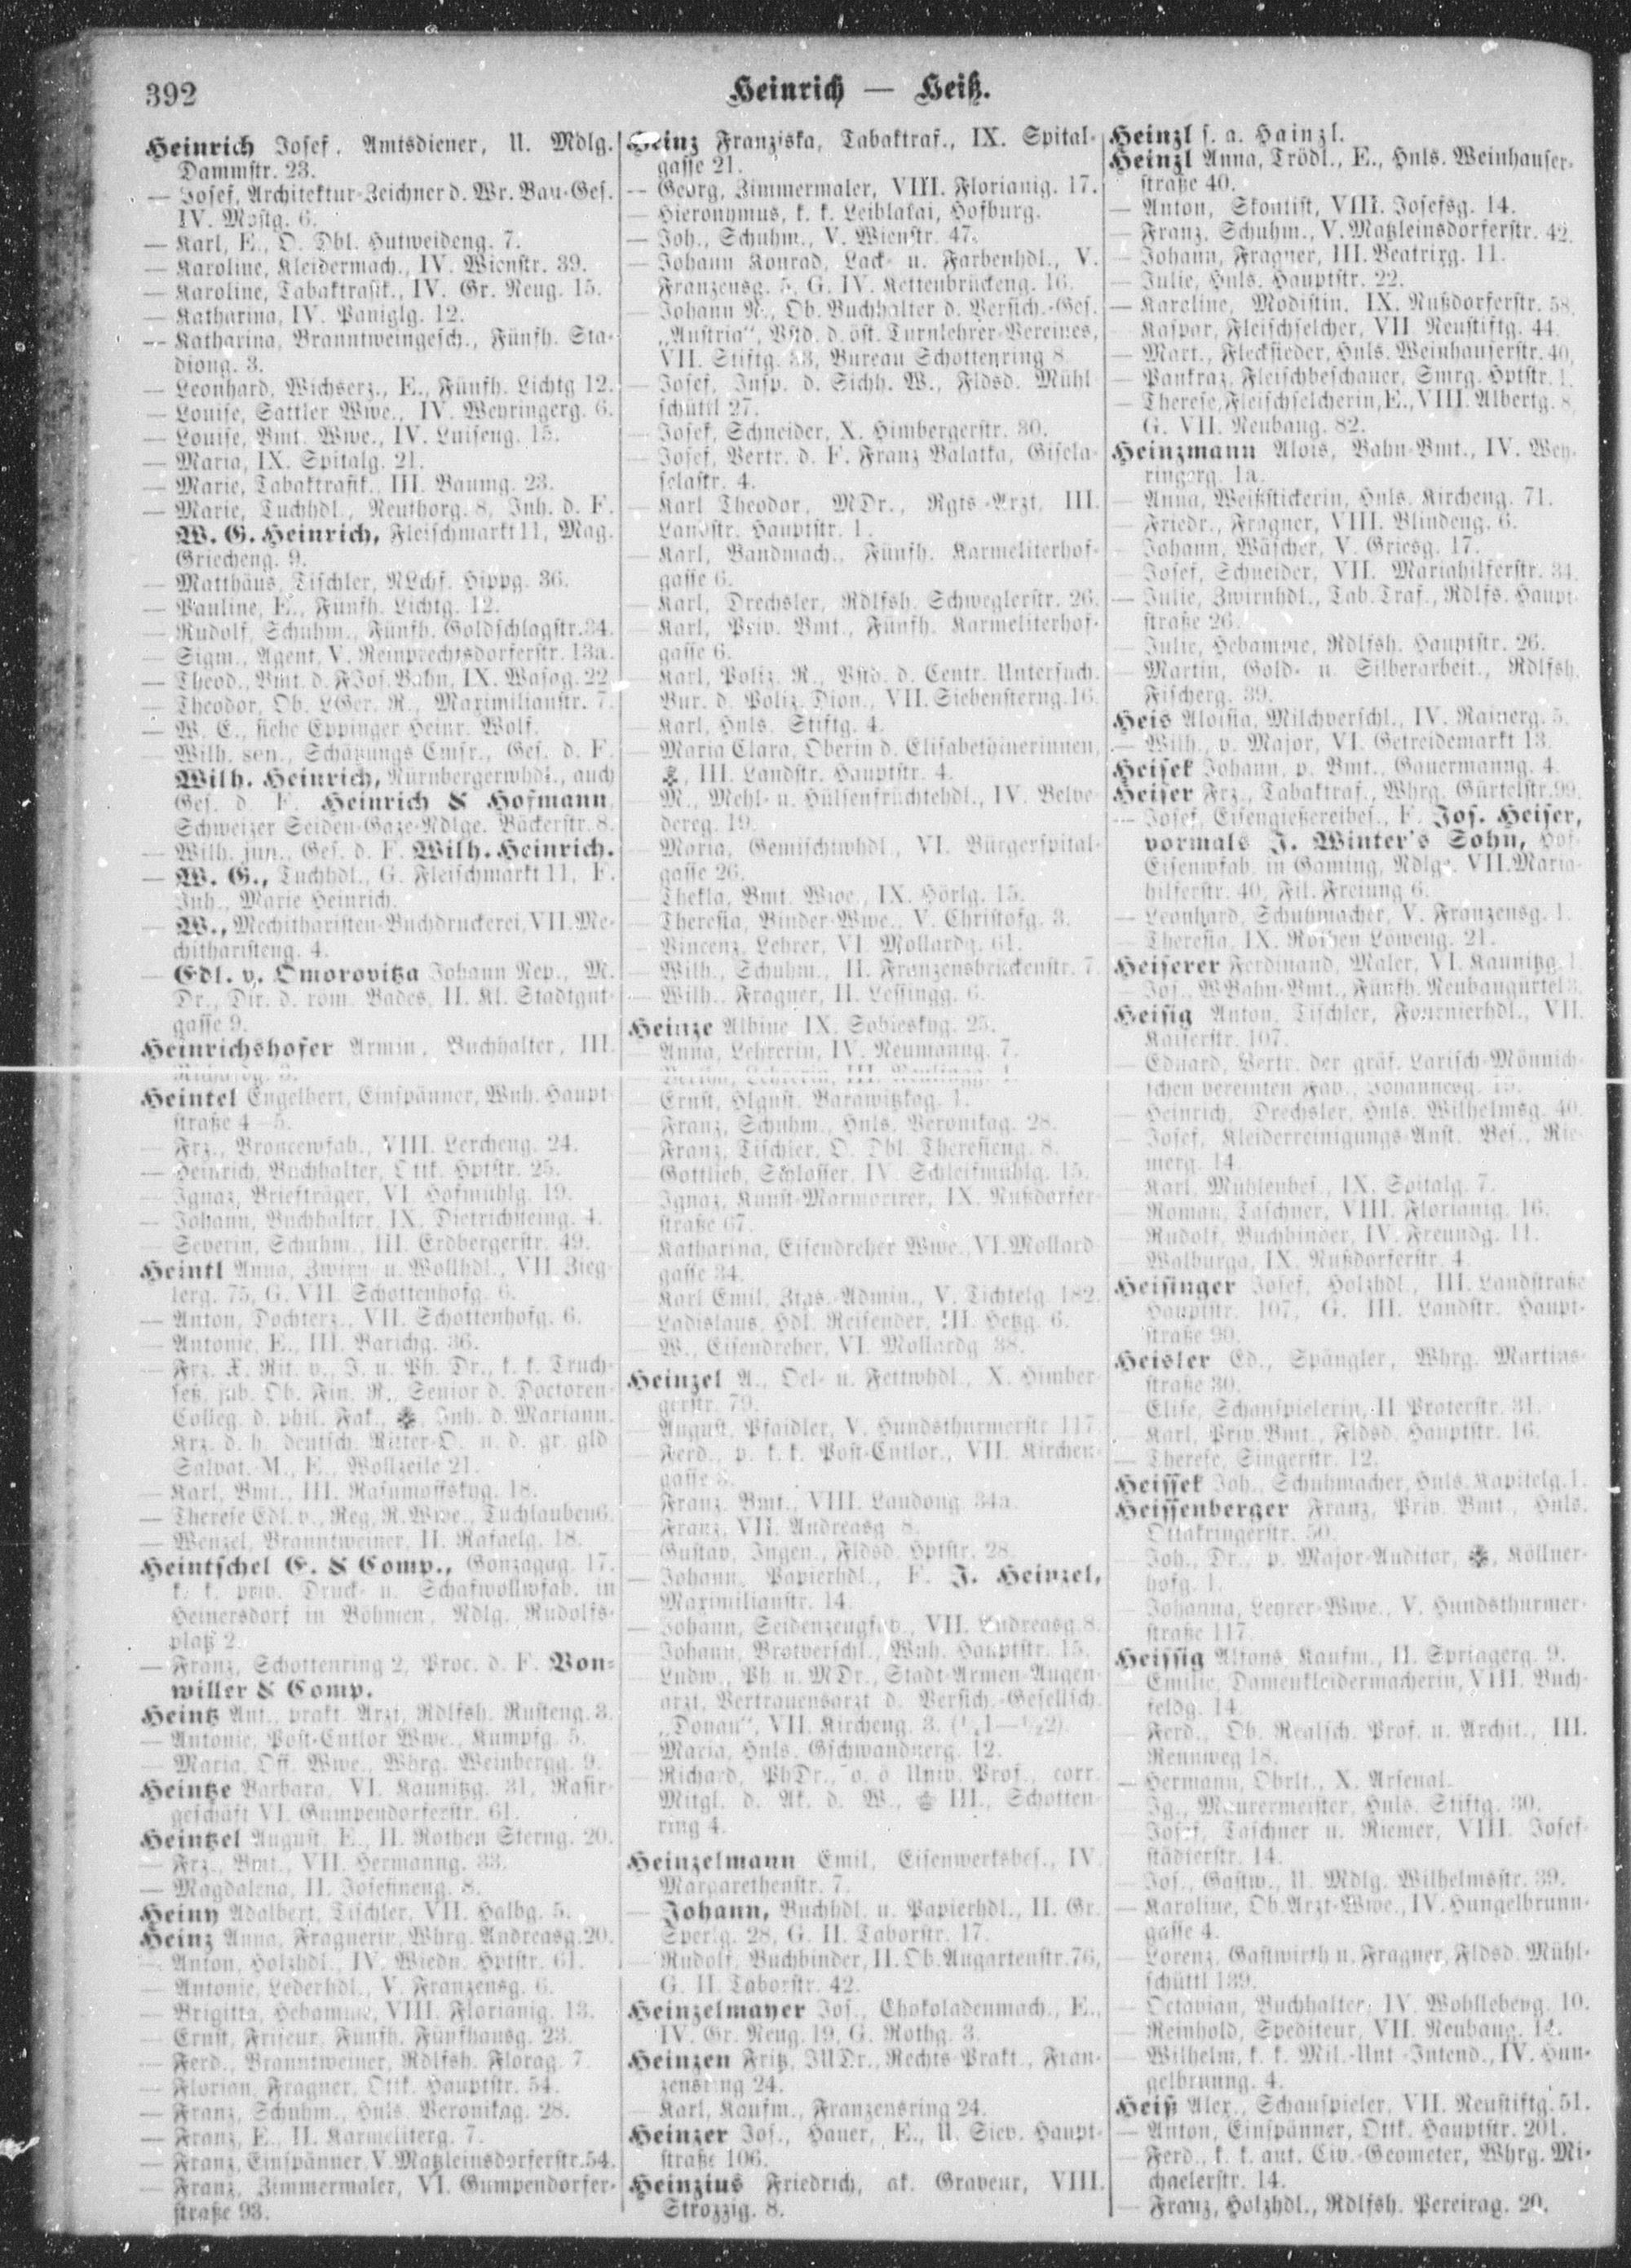 392
Heinrich — Heiß.
Heinrich Josef, Amtsdiener, U. Mdlg.
Dammstr. 23.
— Josef, Architektur-Zeichner d. Wr. Bau-Ges.
IV. Mostg. 6.
— Karl, E., O. Dbl. Hutweideng. 7.
— Karoline, Kleidermach., IV. Wienstr. 39.
— Karoline, Tabaktrafik., IV. Gr. Neug. 15.
— Katharina, IV. Paniglg. 12.
— Katharina, Branntweingesch., Fünfh. Sta-
diong. 3.
— Leonhard, Wichserz., E., Fünfh. Lichtg 12.
— Louise, Sattler Wwe., IV. Weyringerg. 6.
— Louise, Bmt. Wwe., IV. Luiseng. 15.
— Maria, IX. Spitalg. 21.
— Marie, Tabaktrafik., III. Baumg. 23.
— Marie, Tuchhdl., Neuthorg. 8, Inh. d. F.
W. G. Heinrich, Fleischmarkt 11, Mag.
Griecheng. 9.
— Matthäus, Tischler, NLchf. Hippg. 36.
— Pauline, E., Fünfh. Lichtg. 12.
— Rudolf, Schuhm., Fünfh. Goldschlagstr. 34.
— Sigm., Agent, V. Reinprechtsdorferstr. 13a.
— Theod., Bmt. d. FJos. Bahn, IX. Wasag. 22
— Theodor, Ob. LGer. R., Maximilianstr. 7.
— W. E., siehe Eppinger Heinr. Wolf.
— Wilh. sen., Schätzungs Cmsr., Ges. d. F.
Wilh. Heinrich, Nürnbergerwhdl., auch
Ges. d. F. Heinrich & Hofmann,
Schweizer Seiden-Gaze-Ndlge. Bäckerstr. 8.
— Wilh. jun., Ges. d. F. Wilh. Heinrich.
— W. G., Tuchhdl., G. Fleischmarkt 11, F.
Inh., Marie Heinrich.
— W., Mechitharisten-Buchdruckerei, VII. Me-
chitharisteng. 4.
— Edl. v. Omorovitza Johann Nep., M.
Dr., Dir. d. röm. Bades, II. Kl. Stadtgut-
gasse 9.
Heinrichshofer Armin, Buchhalter, III.
Heintel Engelbert, Einspänner, Wnh. Haupt-
straße 4—5.
— Frz., Broncewfab., VIII. Lercheng. 24.
— Heinrich, Buchhalter, Ottk. Hptstr. 25.
— Ignaz, Briefträger, VI. Hofmühlg. 19.
— Johann, Buchhalter, IX. Dietrichsteing. 4.
— Severin, Schuhm., III. Erdbergerstr. 49.
Heintl Anna, Zwirn u. Wollhdl., VII. Zieg-
lerg. 75, G. VII. Schottenhofg. 6.
— Anton, Dochterz., VII. Schottenhofg. 6.
— Antonie, E., III. Barichg. 36.
— Frz. X. Rit. v., J. u. Ph. Dr., k. k. Truch-
seß, jub. Ob. Fin. R., Senior d. Doctoren-
Colleg. d. phil. Fak., Inh. d. Mariann.
Krz. d. h. deutsch. Ritter-O. u. d. gr. gld
Salvat.-M., E., Wollzeile 21.
— Karl, Bmt., III. Rasumoffskyg. 18.
— Therese Edl. v., Reg. R. Wwe., Tuchlauben 6.
— Wenzel, Branntweiner, II. Rafaelg. 18.
Heintschel E. & Comp., Gonzagag. 17.
k. k. priv. Druck- u. Schafwollwfab. in
Heinersdorf in Böhmen, Ndlg. Rudolfs-
platz 2.
— Franz, Schottenring 2, Proc. d. F. Von-
willer & Comp.
Heintz Ant., prakt. Arzt, Rdlfsh. Rusteng. 3.
— Antonie, Post-Cntlor Wwe., Kumpfg. 5.
— Maria, Off. Wwe., Whrg. Weinbergg. 9.
Heintze Barbara, VI. Kaunitzg. 31, Rasir-
geschäft VI. Gumpendorferstr. 61.
Heintzel August, E., II. Rothen Sterng. 20.
— Frz., Bmt., VII. Hermanng. 33.
— Magdalena, II. Josefineng. 8.
Heiny Adalbert, Tischler, VII. Halbg. 5.
Heinz Anna, Fragnerin, Whrg. Andreasg. 20.
— Anton, Holzhdl., IV. Wiedn. Hptstr. 61.
— Antonie, Lederhdl., V. Franzensg. 6.
— Brigitta, Hebamme, VIII. Florianig. 13.
— Ernst, Friseur, Fünfh. Fünfhausg. 23.
— Ferd., Branntweiner, Rdlfsh. Florag. 7.
— Florian, Fragner, Ottk. Hauptstr. 54.
— Franz, Schuhm., Hnls. Veronikag. 28.
— Franz, E., II. Karmeliterg. 7.
— Franz, Einspänner, V. Matzleinsdorferstr. 54.
— Franz, Zimmermaler, VI. Gumpendorfer-
straße 93.
Heinz Franziska, Tabaktraf., IX. Spital-
gasse 21.
— Georg, Zimmermaler, VIII. Florianig. 17.
— Hieronymus, k. k. Leiblakai, Hofburg.
— Joh., Schuhm., V. Wienstr. 47.
— Johann Konrad, Lack- u. Farbenhdl., V.
Franzensg. 5, G. IV. Kettenbrückeng. 16.
— Johann N., Ob. Buchhalter d. Versich.-Ges.
„Austria“, Vstd. d. öst. Turnlehrer-Vereines,
VII. Stiftg. 33, Bureau Schottenring 8.
— Josef, Insp. d. Sichh. W., Fldsd. Mühl-
schüttl 27.
— Josef, Schneider, X. Himbergerstr. 30.
— Josef, Vertr. d. F. Franz Balatka, Gisela-
selastr. 4.
— Karl Theodor, MDr., Rgts-Arzt, III.
Landstr. Hauptstr. 1.
— Karl, Bandmach., Fünfh. Karmeliterhof-
gasse 6.
— Karl, Drechsler, Rdlfsh. Schweglerstr. 26.
— Karl, Priv. Bmt., Fünfh. Karmeliterhof-
gasse 6.
— Karl, Poliz. R., Vstd. d. Centr. Untersuch.
Bur. d. Poliz. Dion., VII. Siebensterng. 16.
— Karl, Hnls. Stiftg. 4.
— Maria Clara, Oberin d. Elisabethinerinnen,
III. Landstr. Hauptstr. 4.
— M., Mehl- u. Hülsenfrüchtehdl., IV. Belve-
dereg. 19.
— Maria, Gemischtwhdl., VI. Bürgerspital-
gasse 26.
— Thekla, Bmt. Wwe., IX. Hörlg. 15.
— Theresia, Binder-Wwe., V. Christofg. 3.
— Vincenz, Lehrer, VI. Mollardg. 61.
— Wilh., Schuhm., II. Franzensbrückenstr. 7
— Wilh., Fragner, II. Lessingg. 6.
Heinze Albine, IX. Sobieskyg. 25.
— Anna, Lehrerin, IV. Neumanng. 7.
— Lehrerin, III.
— Ernst, Hlgust. Barawitzkag. 1.
— Franz, Schuhm., Hnls. Veronikag. 28.
— Franz, Tischler, O. Dbl. Theresieng. 8.
— Gottlieb, Schlosser, IV. Schleifmühlg. 15.
— Ignaz, Kunst-Marmorirer, IX. Nußdorfer-
straße 67.
— Katharina, Eisendreher Wwe., VI. Mollard-
gasse 34.
— Karl Emil, Ztgs.-Admin., V. Tichtelg. 182.
— Ladislaus, Hdl. Reisender, III. Hetzg. 6.
— W., Eisendreher, VI. Mollardg. 38.
Heinzel A., Oel- u. Fettwhdl., X. Himber-
gerstr. 79.
— August, Pfaidler, V. Hundsthurmerstr. 117.
— Ferd., p. k. k. Post-Cntlor., VII. Kirchen-
gasse 3.
— Franz, Bmt., VIII. Laudong. 34a.
— Franz, VII. Andreasg. 8.
— Gustav, Ingen., Fldsd. Hptstr. 28.
— Johann, Papierhdl., F. J. Heinzel,
Maximilianstr. 14.
— Johann, Seidenzeugfab., VII. Andreasg. 8.
— Johann, Brotverschl., Wnh. Hauptstr. 15.
— Ludw., Ph. u. MDr., Stadt-Armen-Augen-
arzt, Vertrauensarzt d. Versich.-Gesellsch.
„Donau“, VII. Kircheng. 3. (½1—½2).
— Maria, Hnls. Gschwandnerg. 12.
— Richard, PhDr., o. ö. Univ. Prof., corr.
Mitgl. d. Ak. d. W., III., Schotten-
ring 4.
Heinzelmann Emil, Eisenwerksbes., IV.
Margarethenstr. 7.
— Johann, Buchhdl. u. Papierhdl., II. Gr.
Sperlg. 28, G. II. Taborstr. 17.
— Rudolf, Buchbinder, II. Ob. Augartenstr. 76,
G. II. Taborstr. 42.
Heinzelmayer Jos., Chokoladenmach., E.,
IV. Gr. Neug. 19, G. Rothg. 3.
Heinzen Fritz, JUDr., Rechts-Prakt., Fran-
zensring 24.
— Karl, Kaufm., Franzensring 24.
Heinzer Jos., Hauer, E., U. Siev. Haupt-
straße 106.
Heinzius Friedrich, ak. Graveur, VIII.
Strozzig. 8.
Heinzl s. a. Hainzl.
Heinzl Anna, Trödl., E., Hnls. Weinhauser-
straße 40.
— Anton, Skontist, VIII. Josefsg. 14.
— Franz, Schuhm., V. Matzleinsdorferstr. 42.
— Johann, Fragner, III. Beatrixg. 11.
— Julie, Hnls. Hauptstr. 22.
— Karoline, Modistin, IX. Nußdorferstr. 58.
— Kaspar, Fleischselcher, VII. Neustiftg. 44.
— Mart., Flecksieder, Hnls. Weinhauserstr. 40.
— Pankraz, Fleischbeschauer, Smrg. Hptstr. 1.
— Therese, Fleischselcherin, E., VIII. Albertg. 8,
G. VII. Neubaug. 82.
Heinzmann Alois, Bahn-Bmt., IV. Wey-
ringerg. 1a.
— Anna, Weißstickerin, Hnls. Kircheng. 71.
— Friedr., Fragner, VIII. Blindeng. 6.
— Johann, Wäscher, V. Griesg. 17.
— Josef, Schneider, VII. Mariahilferstr. 34.
— Julie, Zwirnhdl., Tab. Traf., Rdlfs. Haupt-
straße 26.
— Julie, Hebamme, Rdlfsh. Hauptstr. 26.
— Martin, Gold- u. Silberarbeit., Rdlfsh.
Fischerg. 39.
Heis Aloisia, Milchverschl., IV. Rainerg. 5.
— Wilh., p. Major, VI. Getreidemarkt 13.
Heisek Johann, p. Bmt., Gauermanng. 4.
Heiser Frz., Tabaktraf., Whrg. Gürtelstr. 99.
— Josef, Eisengießereibes., F. Jos. Heiser,
vormals J. Winter's Sohn, Hof-
Eisenwfab. in Gaming, Ndlg. VII. Maria-
hilferstr. 40, Fil. Freiung 6.
— Leonhard, Schuhmacher, V. Franzensg. 1.
— Theresia, IX. Rothen Löweng. 21.
Heiserer Ferdinand, Maler, VI. Kaunitzg. 1.
— Jos., WBahn-Bmt., Fünfh. Neubaugürtel 3.
Heisig Anton, Tischler, Fournierhdl., VII.
Kaiserstr. 107.
— Eduard, Vertr. der gräf. Larisch-Mönnich-
schen vereinten Fab., Johannesg.
— Heinrich, Drechsler, Hnls. Wilhelmsg. 40.
— Josef, Kleiderreinigungs-Anst. Bes., Rie-
merg. 14.
— Karl, Mühlenbes., IX. Spitalg. 7.
— Roman, Taschner, VIII. Florianig. 16.
— Rudolf, Buchbinder, IV. Freundg. 11.
— Walburga, IX. Nußdorferstr. 4.
Heisinger Josef, Holzhdl., III. Landstraße
Hauptstr. 107, G. III. Landstr. Haupt-
straße 90.
Heisler Ed., Spängler, Whrg. Martins-
straße 30.
— Elise, Schauspielerin, II. Praterstr. 31.
— Karl, Priv. Bmt., Fldsd. Hauptstr. 16.
— Therese, Singerstr. 12.
Heissek Joh., Schuhmacher, Hnls. Kapitelg. 1.
Heissenberger Franz, Priv. Bmt., Hnls.
Ottakringerstr. 50.
— Joh., Dr., p. Major-Auditor, Köllner-
hofg. 1.
— Johanna, Lehrer-Wwe., V. Hundsthurmer-
straße 117.
Heissig Alfons, Kaufm., II. Springerg. 9.
— Emilie, Damenkleidermacherin, VIII. Buch-
feldg. 14.
— Ferd., Ob. Realsch. Prof. u. Archit., III.
Rennweg 18.
— Hermann, Obrlt., X. Arsenal.
— Ig., Maurermeister, Hnls. Stiftg. 30.
— Josef, Taschner u. Riemer, VIII. Josef-
städterstr. 14.
— Jos., Gastw., U. Mdlg. Wilhelmsstr. 39.
— Karoline, Ob. Arzt-Wwe., IV. Hungelbrunn-
gasse 4.
— Lorenz, Gastwirth u. Fragner, Fldsd. Mühl-
schüttl 139.
— Octavian, Buchhalter, IV. Wohllebeng. 10.
— Reinhold, Spediteur, VII. Neubaug. 12.
— Wilhelm, k. k. Mil.-Unt.-Intend., IV. Hun-
gelbrunng. 4.
Heiß Alex., Schauspieler, VII. Neustiftg. 51.
— Anton, Einspänner, Ottk. Hauptstr. 201.
— Ferd., k. k. aut. Civ.-Geometer, Whrg. Mi-
chaelerstr. 14.
— Franz, Holzhdl., Rdlfsh. Pereirag. 20.